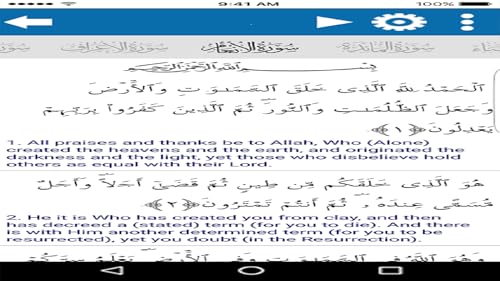 9:41 AM 100%
سورة المائدة سورة الأنعام سورة الأعراف
بسم الله الرحمن الرحيم
ٱلْحَمْدُ لِلَّهِ ٱلَّذِى خَلَقَ ٱلسَّمَـٰوَٰتِ وَٱلْأَرْضَ
وَجَعَلَ ٱلظُّلُمَـٰتِ وَٱلنُّورَ ۖ ثُمَّ ٱلَّذِينَ كَفَرُوا۟ بِرَبِّهِمْ
يَعْدِلُونَ ﴿١﴾
1. All praises and thanks be to Allah, Who (Alone)
created the heavens and the earth, and originated the
darkness and the light, yet those who disbelieve hold
others as equal with their Lord.
هُوَ ٱلَّذِى خَلَقَكُم مِّن طِينٍ ثُمَّ قَضَىٰٓ أَجَلًا ۖ وَأَجَلٌ
مُّسَمًّى عِندَهُۥ ۖ ثُمَّ أَنتُمْ تَمْتَرُونَ ﴿٢﴾
2. He it is Who has created you from clay, and then
has decreed a (stated) term (for you to die). And there
is with Him another determined term (for you to be
resurrected), yet you doubt (in the Resurrection).
وَهُوَ ٱللَّهُ فِى ٱلسَّمَـٰوَٰتِ وَفِى ٱلْأَرْضِ ۖ يَعْلَمُ سِرَّكُمْ